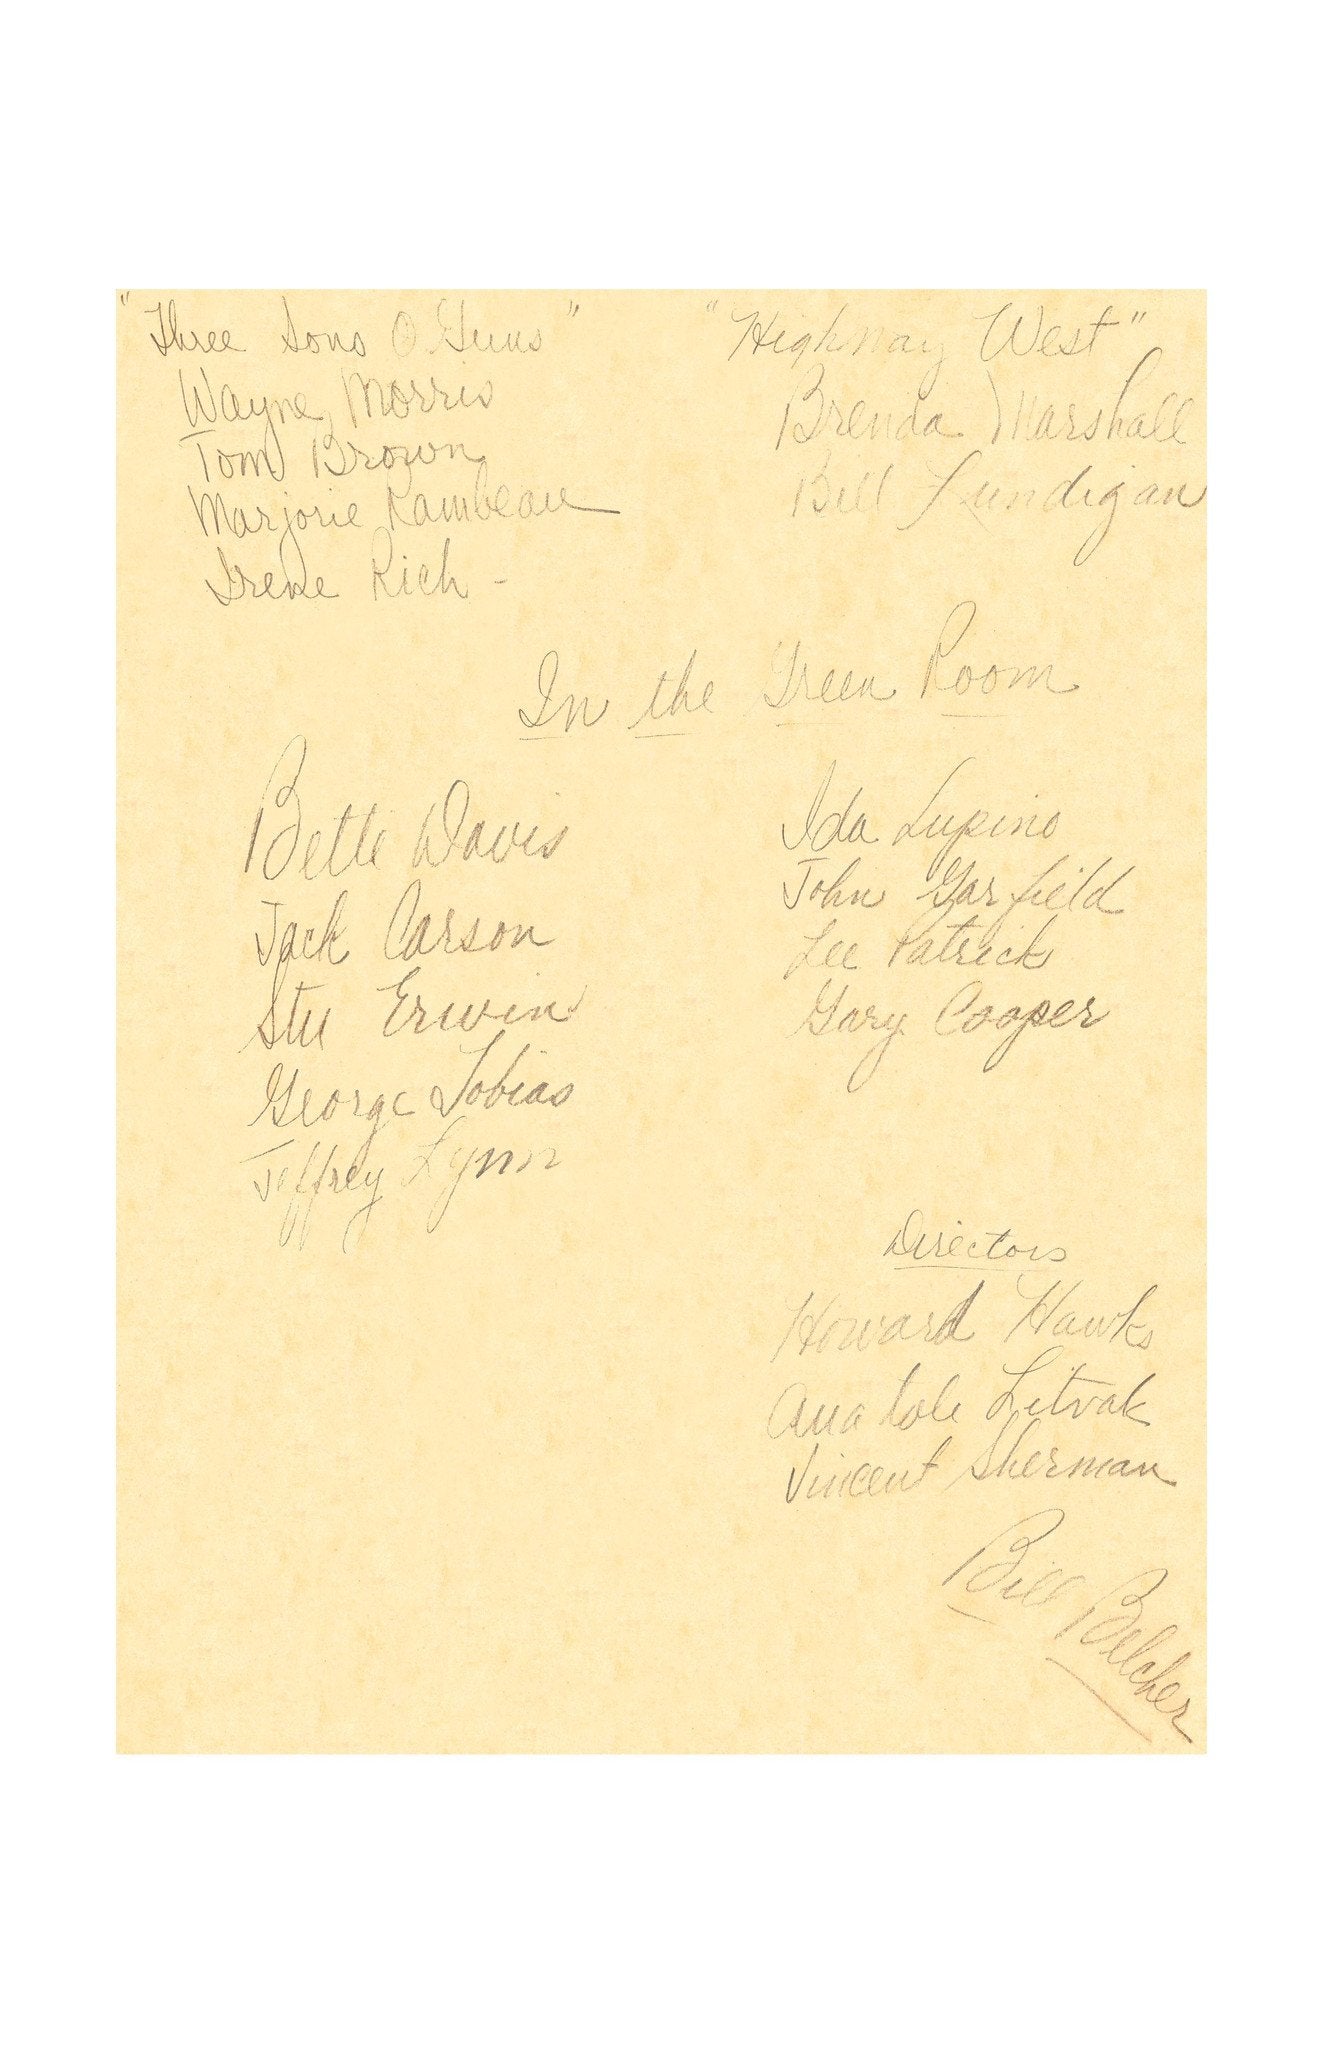 "Three Sons O Guns"
Wayne Morris
Tom Brown
Marjorie Rambeau
Irene Rich -
"Highway West"
Brenda Marshall
Bill Lundigan
In the Green Room
Bette Davis
Jack Carson
Stu Erwin
George Tobias
Jeffrey Lynn
Ida Lupino
John Garfield
Lee Patrick
Gary Cooper
Directors
Howard Hawks
Anatole Litvak
Vincent Sherman
Bill Belcher